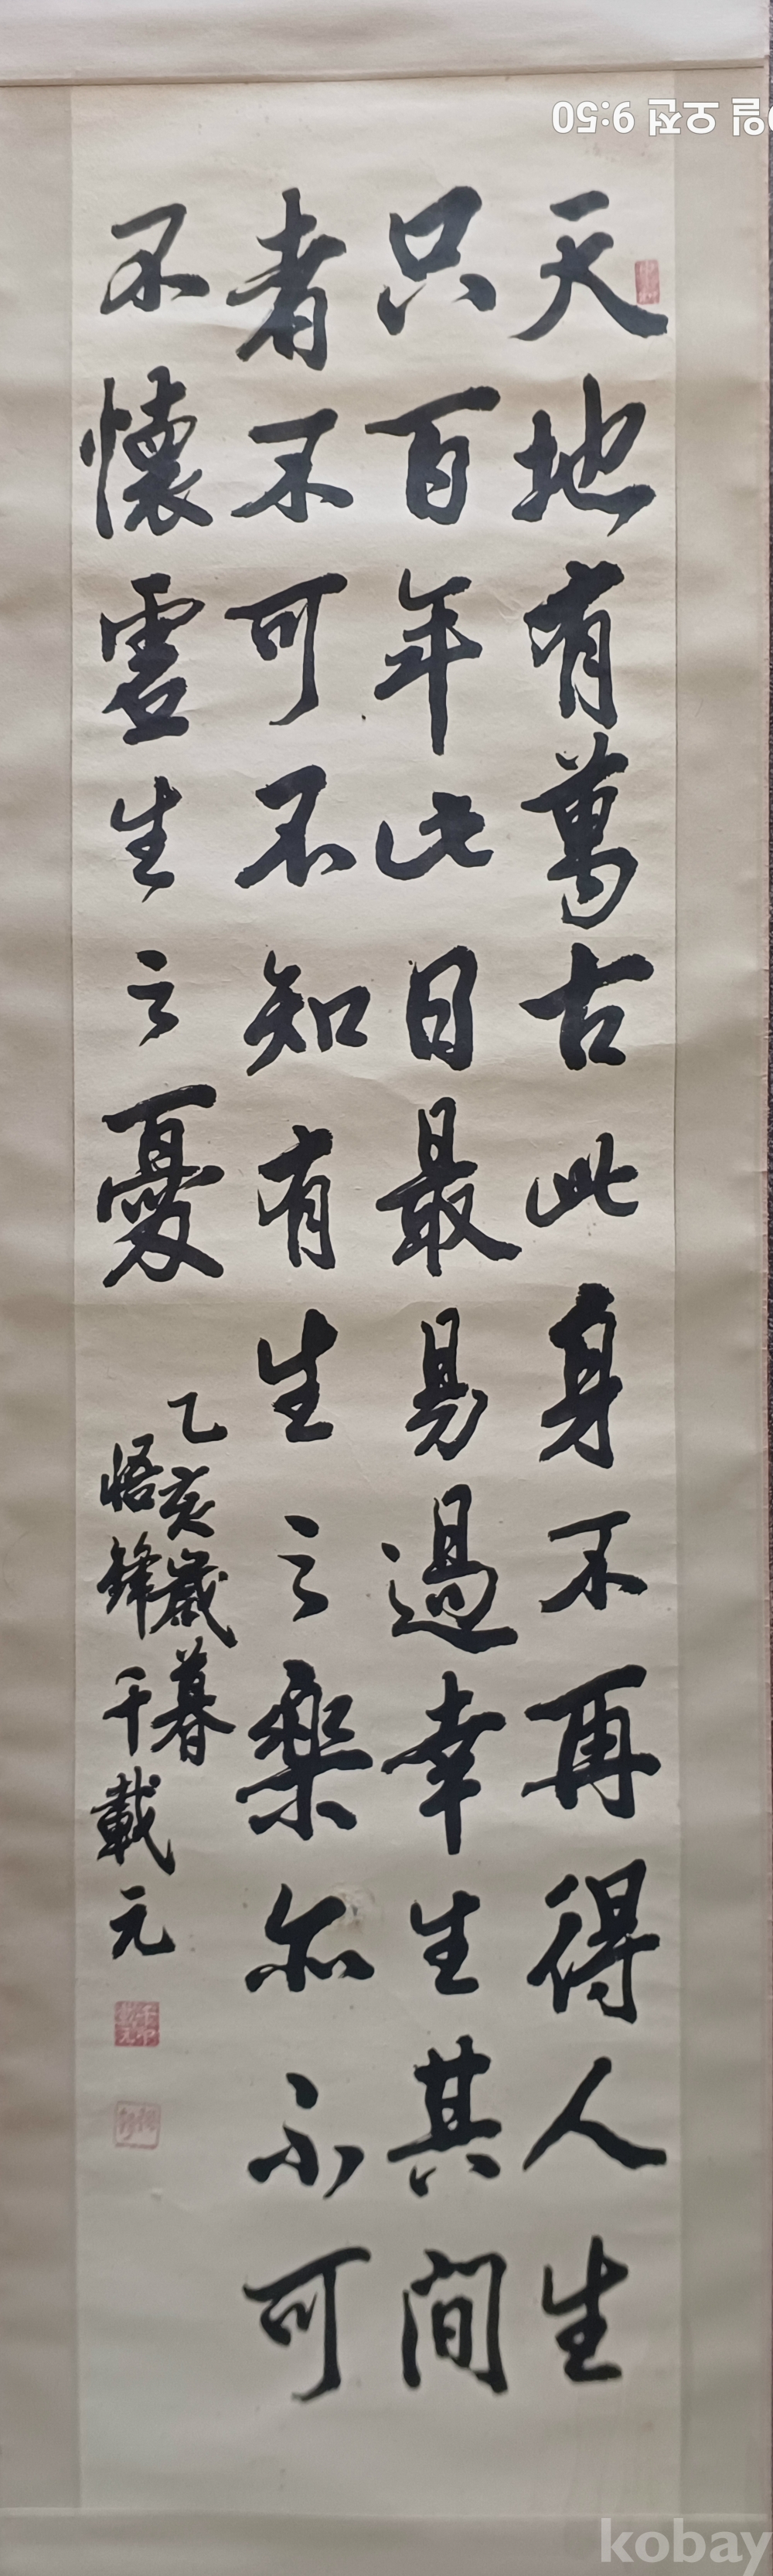 天地有萬古此身不再得人生
只百年此日最易過幸生其間
者不可不知有生之樂亦不可
不懷虛生之憂
乙亥歲暮
悟鋒千載元
9일 오전 9:50
kobay